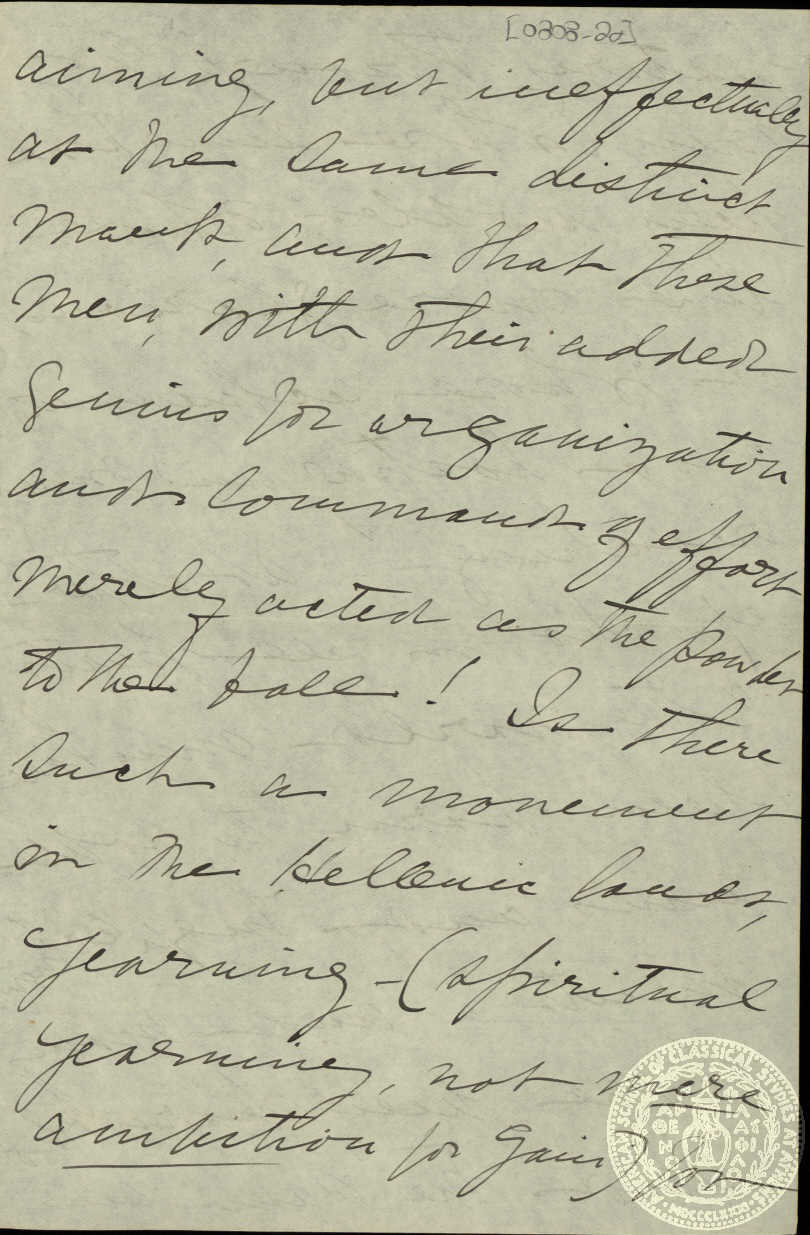 [0808-22]
aiming, but ineffectually
at the same distinct
mark, and that these
men, with their added
genius for organization
and command of effort
merely acted as the powder
to the ball! Is there
such a movement
in the Hellenic lands,
yearning - (spiritual
yearning, not mere
ambition for gain) for
AMERICAN SCHOOL OF CLASSICAL STUDIES AT ATHENS
MDCCCLXXXI